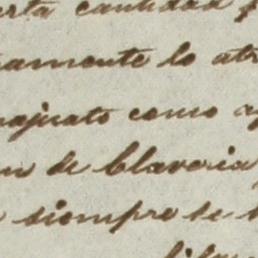 erta cantidad
amente lo atr
najuato como a
de Claveria
siempre se